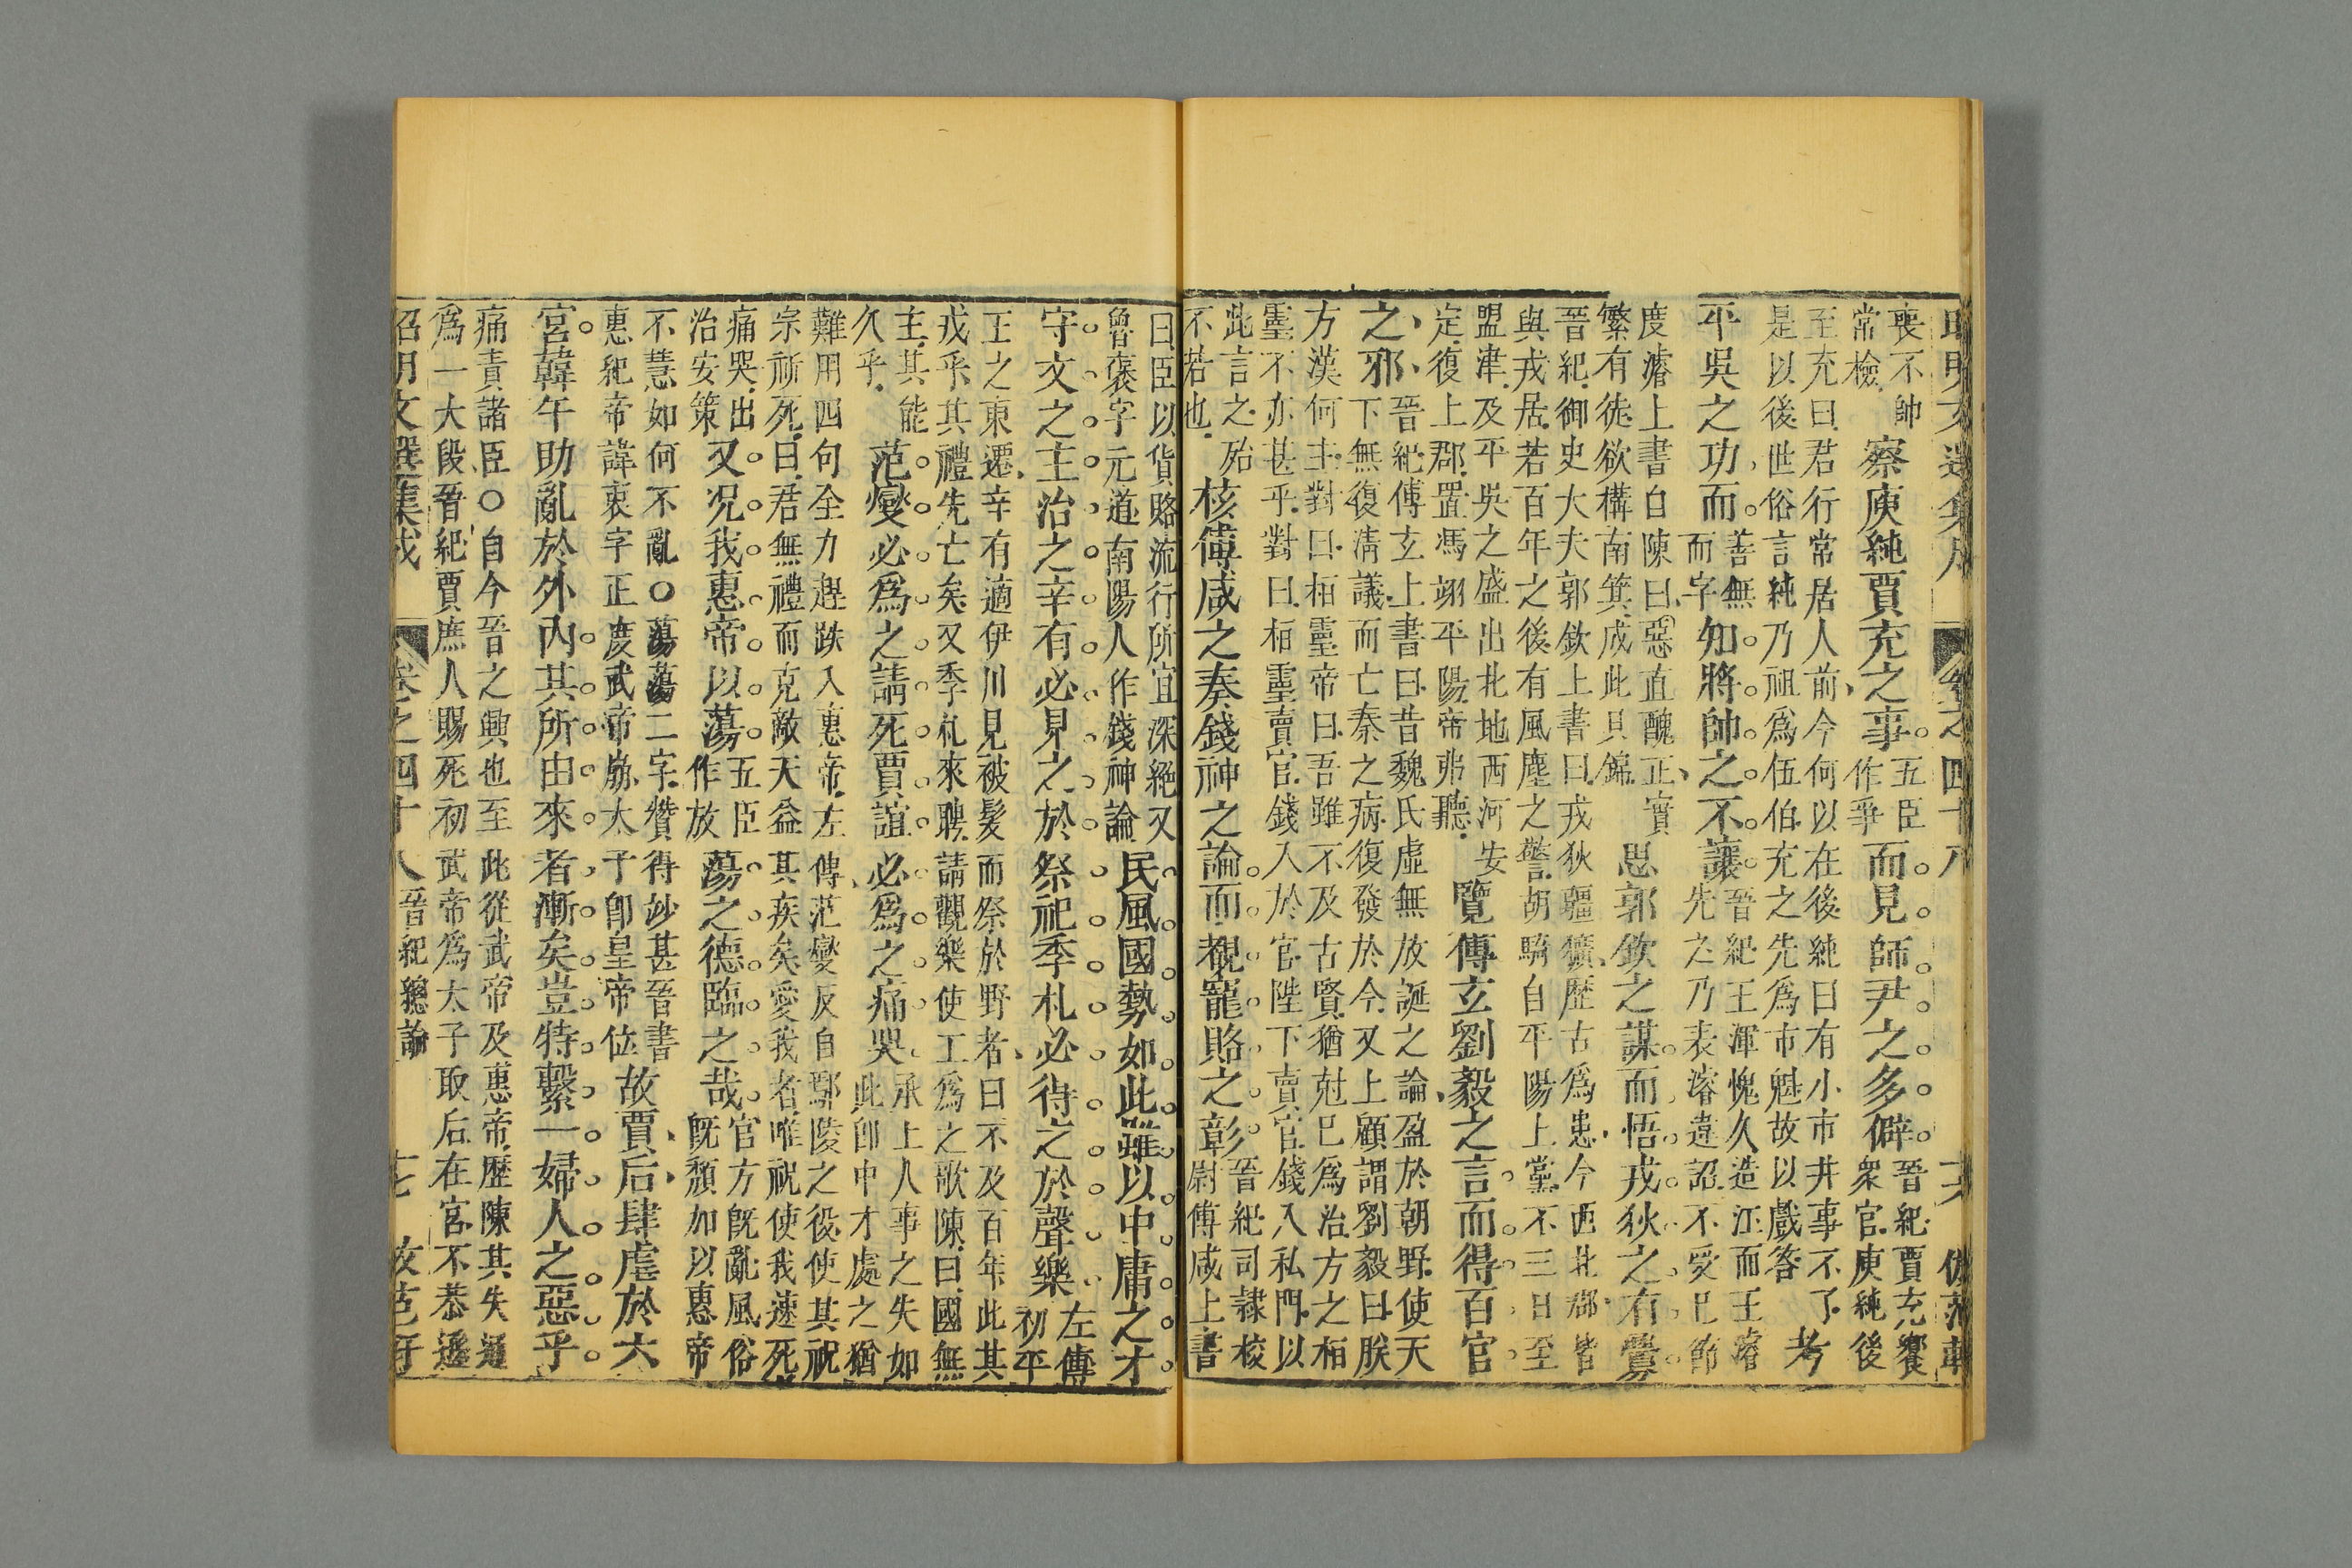 喪不帥
常檢
察庾純賈充之事
五臣
作爭
而見師尹之多僻
晉紀賈充饗
衆官庾純後
至充曰君行常居人前今何以在後純曰有小市井事不了
是以後世俗言純乃祖爲伍伯充之先爲市魁故以戲答
考
平吳之功而
善無
而字
知將帥之不讓
晉紀王渾愧久造江而王濬
先之乃表濬違詔不受已節
度濬上書自陳曰惡直醜正實
繁有徒欲構南箕成此貝錦
思郭欽之謀而悟戎狄之有釁
晉紀御史大夫郭欽上書曰戎狄疆獷歷古爲患今西北郡皆
與戎居若百年之後有風塵之警胡騎自平陽上黨不三日至
盟津及平吳之盛出北地西河安
定復上郡置馮翊平陽帝弗聽
覽傅玄劉毅之言而得百官
之邪
晉紀傅玄上書曰昔魏氏虛無放誕之論盈於朝野使天
下無復淸議而亡秦之病復發於今又上顧謂劉毅曰朕
方漢何主對曰桓靈帝曰吾雖不及古賢猶尅已爲治方之桓
靈不亦甚乎對曰桓靈賣官錢入於官陛下賣官錢入私門以
此言之殆
不若也
核傅咸之奏錢神之論而覩寵賂之彰
晉紀司隸校
尉傅咸上書
曰臣以貨賂流行所宜深絶又
魯褒字元道南陽人作錢神論
民風國勢如此雖以中庸之才
守文之主治之辛有必見之於祭祀季札必得之於聲樂
左傳
初平
王之東遷辛有適伊川見被髮而祭於野者曰不及百年此其
戎乎其禮先亡矣又季札來聘請觀樂使工爲之歌陳曰國無
主其能
久乎
范燮必爲之請死賈誼必爲之痛哭
承上人事之失如
此卽中才處之猶
難用四句全力趕跌入惠帝左傳范燮反自鄢陵之役使其祝
宗祈死曰君無禮而克敵天益其疾矣愛我者唯祝使我速死
痛哭出
治安策
又況我惠帝以蕩
五臣
作放
蕩之德臨之哉
官方旣亂風俗
旣頹加以惠帝
不慧如何不亂○蕩蕩二字贊得妙甚晉書
惠紀帝諱衷字正度武帝崩太子卽皇帝位
故賈后肆虐於六
宮韓午助亂於外內其所由來者漸矣豈特繫一婦人之惡乎
痛責諸臣○自今晉之興也至此從武帝及惠帝歷陳其失通
爲一大段晉紀賈庶人賜死初武帝爲太子取后在宮不恭遜
昭明文選集成
卷之四十八
晉紀總論